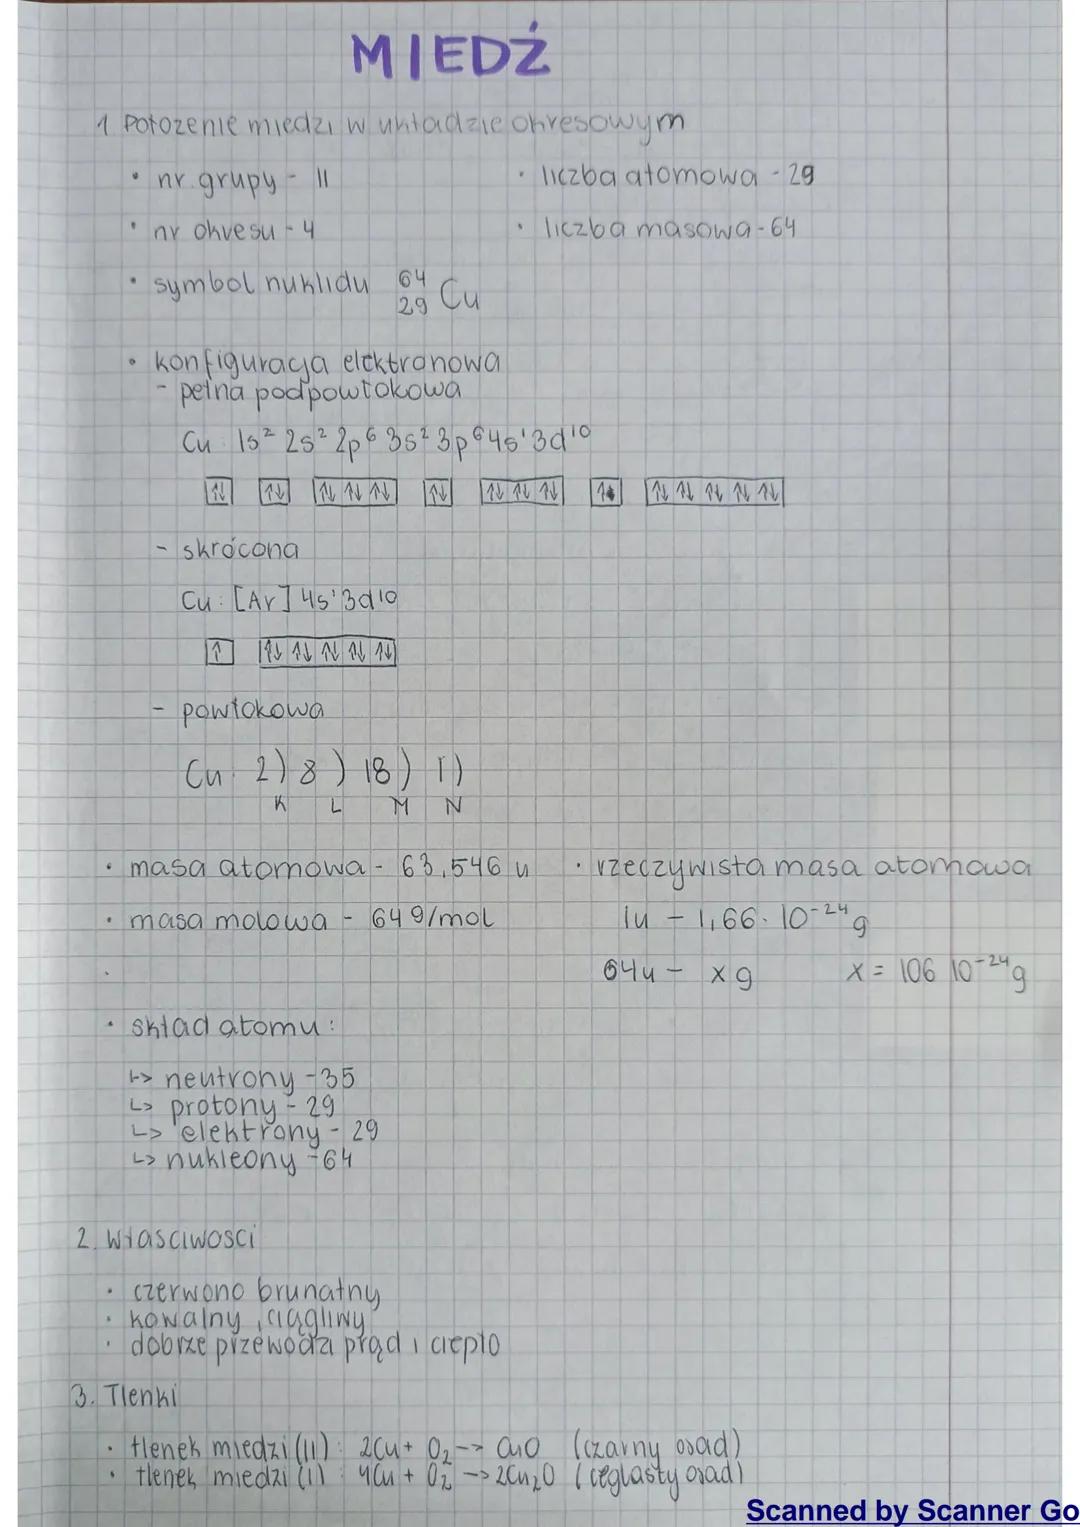 MIEDŹ
1 Położenie miedzi w układzie okresowym
• nr. grupy - 11
• liczba atomowa - 29
• nr okresu - 4
• liczba masowa - 64
• symbol nuklidu 64 29 Cu
• konfiguracja elektronowa
- pełna podpowłokowa
Cu: 1s² 2s² 2p⁶ 3s² 3p⁶ 4s¹ 3d¹⁰
↑↓ ↑↓ ↑↓ ↑↓ ↑↓ ↑↓ ↑↓ ↑↓ ↑↓ ↑ ↑↓ ↑↓ ↑↓ ↑↓ ↑↓
- skrócona
Cu: [Ar] 4s¹ 3d¹⁰
↑ ↑↓ ↑↓ ↑↓ ↑↓ ↑↓
- powłokowa
Cu: 2) 8 ) 18 ) 1)
K L M N
• masa atomowa - 63,546 u
• rzeczywista masa atomowa
• masa molowa - 64 g/mol
1u - 1,66 · 10⁻²⁴ g
64u - x g x = 106 10⁻²⁴ g
• skład atomu:
↳ neutrony - 35
↳ protony - 29
↳ elektrony - 29
↳ nukleony - 64
2. Właściwosci
• czerwono brunatny
• kowalny, ciągliwy
• dobrze przewodzi prąd i ciepło
3. Tlenki
• tlenek miedzi (II): 2Cu + O₂ --> CuO (czarny osad)
• tlenek miedzi (I): 4Cu + O₂ -> 2Cu₂O (ceglasty osad)
Scanned by Scanner Go